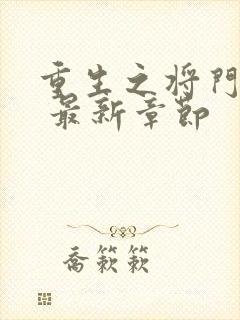 重生之将門
最新章节
喬簌簌